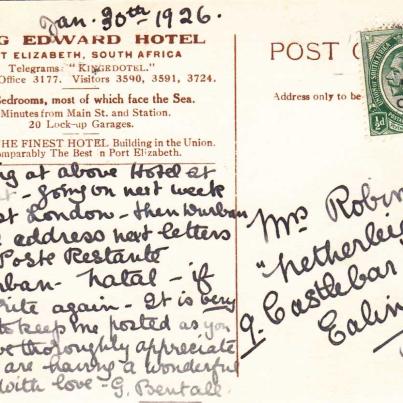 Jan. 30th 1926.
G EDWARD HOTEL
T ELIZABETH, SOUTH AFRICA
Telegrams "KINGEDOTEL."
Office 3177. Visitors 3590, 3591, 3724.
Bedrooms, most of which face the Sea.
Minutes from Main St. and Station.
20 Lock-up Garages.
THE FINEST HOTEL Building in the Union.
omparably The Best in Port Elizabeth.
ng at above Hotel at
t - going on next week
st London - then Durban
e address next letters
Poste Restante
ban - Natal - if
rite again - It is very
to keep me posted as you
ve thoroughly appreciate
are having a wonderful
with love - G. Bentall.
POST C
Address only to be
½d
Mrs Robin
"Netherleig
9. Castlebar
Ealin